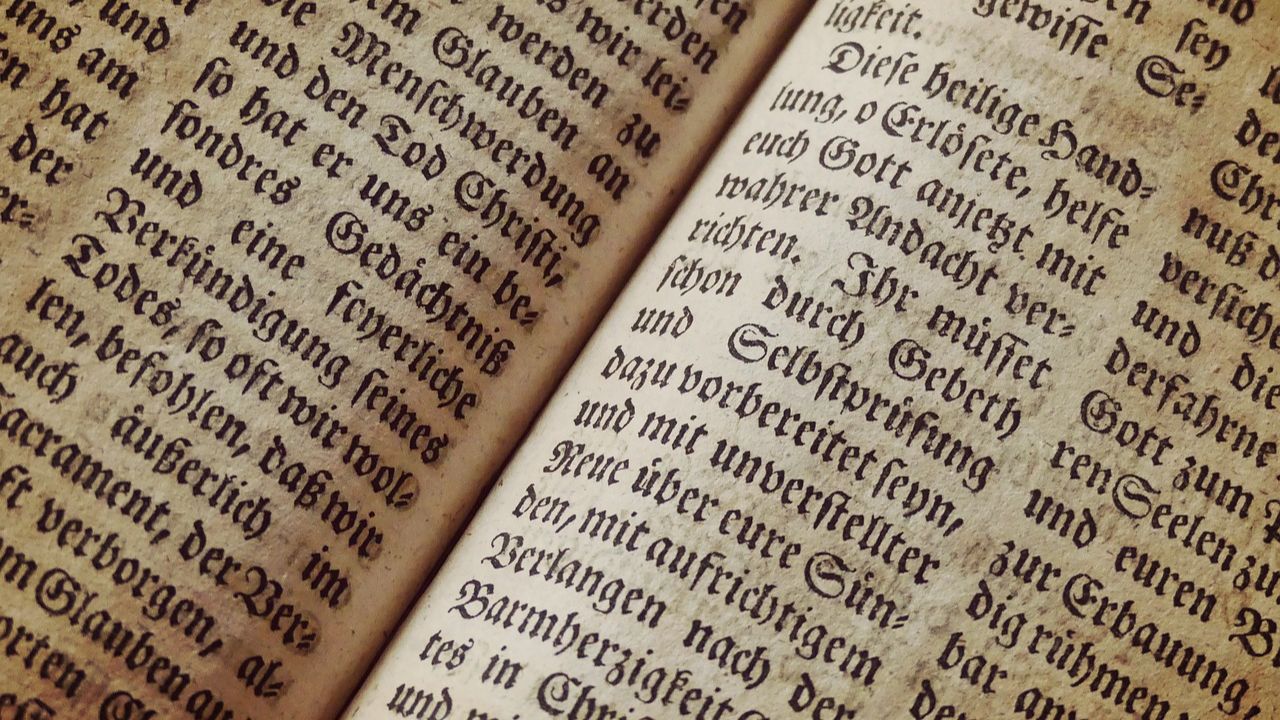 und
uns am
hat
der
er-
wir lei-
werden zu
Glauben an
die Menschwerdung
und den Tod Christi,
so hat er uns ein be-
sondres Gedächtniß
und eine feyerliche
Verkündigung seines
Todes, so oft wir wol-
len, befohlen, daß wir
auch äußerlich im
Sacrament, der Ver-
verborgen, al-
Glauben an
sey
gewisse Se-
ligkeit.
Diese heilige Hand-
lung, o Erlösete, helfe
euch Gott anjetzt mit
wahrer Andacht ver-
richten. Ihr müsset
schon durch Gebeth
und Selbstprüfung
dazu vorbereitet seyn,
und mit unverstellter
Reue über eure Sün-
den, mit aufrichtigem
Verlangen nach der
Barmherzigkeit
tes in
und
nuß
versiche
und die
derfahrne
Gott zum
ren Seelen zu
und euren
zur Erbauung,
dig rühmen
bar